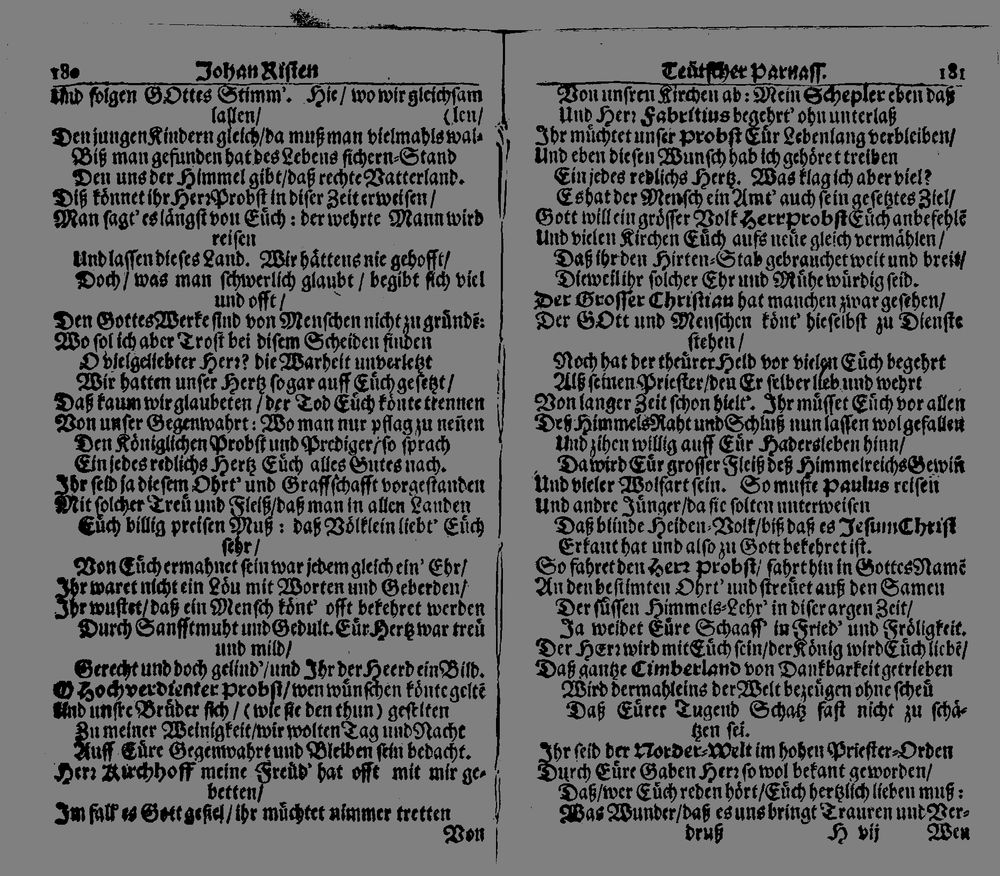 180 Johan Risten
Und folgen GOttes Stimm'. Hie/ wo wir gleichsam
lallen/ (len/
Den jungen Kindern gleich/da muß man vielmahls wal-
Biß man gefunden hat des Lebens sichern-Stand
Den uns der Himmel gibt/daß rechte Vatterland.
Diß könnet ihr Herr Probst in diser Zeit erweisen/
Man sagt' es längst von Eüch: der wehrte Mann wird
reisen
Und lassen dieses Land. Wir hättens nie gehofft/
Doch/ was man schwerlich glaubt/ begibt sich viel
und offt/
Den Gottes Werke sind von Menschen nicht zu gründē:
Wo sol ich aber Trost bei disem Scheiden finden
O vielgeliebter Herr? die Warheit unverletzt
Wir hatten unser Hertz sogar auff Eüch gesetzt/
Daß kaum wir glaubeten/der Tod Eüch könte trennen
Von unser Gegenwahrt: Wo man nur pflag zu neñen
Den Königlichen Probst und Prediger/so sprach
Ein jedes redlichs Hertz Eüch alles Gutes nach.
Ihr seid ja diesem Ohrt' und Graffschafft vorgestanden
Mit solcher Treü und Fleiß/daß man in allen Landen
Eüch billig preisen Muß: daß Völklein liebt' Eüch
sehr/
Von Eüch ermahnet sein war jedem gleich ein' Ehr/
Ihr waret nicht ein Löu mit Worten und Geberden/
Ihr wustet/daß ein Mensch könt' offt bekehret werden
Durch Sanfftmuht und Gedult. Eür Hertz war treü
und mild/
Gerecht und doch gelind'/und Ihr der Heerd ein Bild.
O Hochverdienter Probst/wen wünschen könte geltē
Und unsre Brüder sich/(wie sie den thun) gestelten
Zu meiner Weinigkeit/wir wolten Tag und Nacht
Auff Eüre Gegenwahrt und Bleiben sein bedacht.
Herr Kirchhoff meine Freüd' hat offt mit mir ge-
betten/
Im fall es Gott gefiel/ihr müchtet nimmer tretten
Von
Teütscher Parnass. 181
Von unsren Kirchen ab: Mein Schepler eben daß
Und Herr Fabritius begehrt' ohn unterlaß
Ihr müchtet unser Probst Eür Lebenlang verbleiben/
Und eben diesen Wunsch hab ich gehöret treiben
Ein jedes redlichs Hertz. Was klag ich aber viel?
Es hat der Mensch ein Amt' auch sein gesetztes Ziel/
Gott will ein grösser Volk Herr Probst Eüch anbefehlē
Und vielen Kirchen Eüch aufs neüe gleich vermählen/
Daß ihr den Hirten-Stab gebrauchet weit und breit/
Dieweil ihr solcher Ehr und Mühe würdig seid.
Der Grosser Christian hat manchen zwar gesehen/
Der GOtt und Menschen könt' hieselbst zu Dienste
stehen/
Noch hat der theürer Held vor vielen Eüch begehrt
Alß seinen Priester/den Er selber lieb und wehrt
Von langer Zeit schon hielt'. Ihr müsset Eüch vor allen
Deß Himmels Raht und Schluß nun lassen wol gefallen
Und zihen willig auff Eür Hadersleben hinn/
Da wird Eür grosser Fleiß deß Himmelreichs Gewiñ
Und vieler Wolfart sein. So muste Paulus reisen
Und andre Jünger/da sie solten unterweisen
Daß blinde Heiden-Volk/biß daß es Jesum Christ
Erkant hat und also zu Gott bekehret ist.
So fahret den Herr Probst/fahrt hin in Gottes Namē
An den bestimten Ohrt' und streüet auß den Samen
Der süssen Himmels-Lehr' in diser argen Zeit/
Ja weidet Eüre Schaaff' in Fried' und Fröligkeit.
Der HErr wird mit Eüch sein/der König wird Eüch liebē/
Daß gantze Cimberland von Dankbarkeit getrieben
Wird dermahleins der Welt bezeügen ohne scheü
Daß Eürer Tugend Schatz fast nicht zu schä-
tzen sei.
Ihr seid der Norder-Welt im hohen Priester-Orden
Durch Eüre Gaben Herr so wol bekant geworden/
Daß/wer Eüch reden hört/Eüch hertzlich lieben muß:
Was Wunder/daß es uns bringt Trauren und Ver-
druß H vij Wen